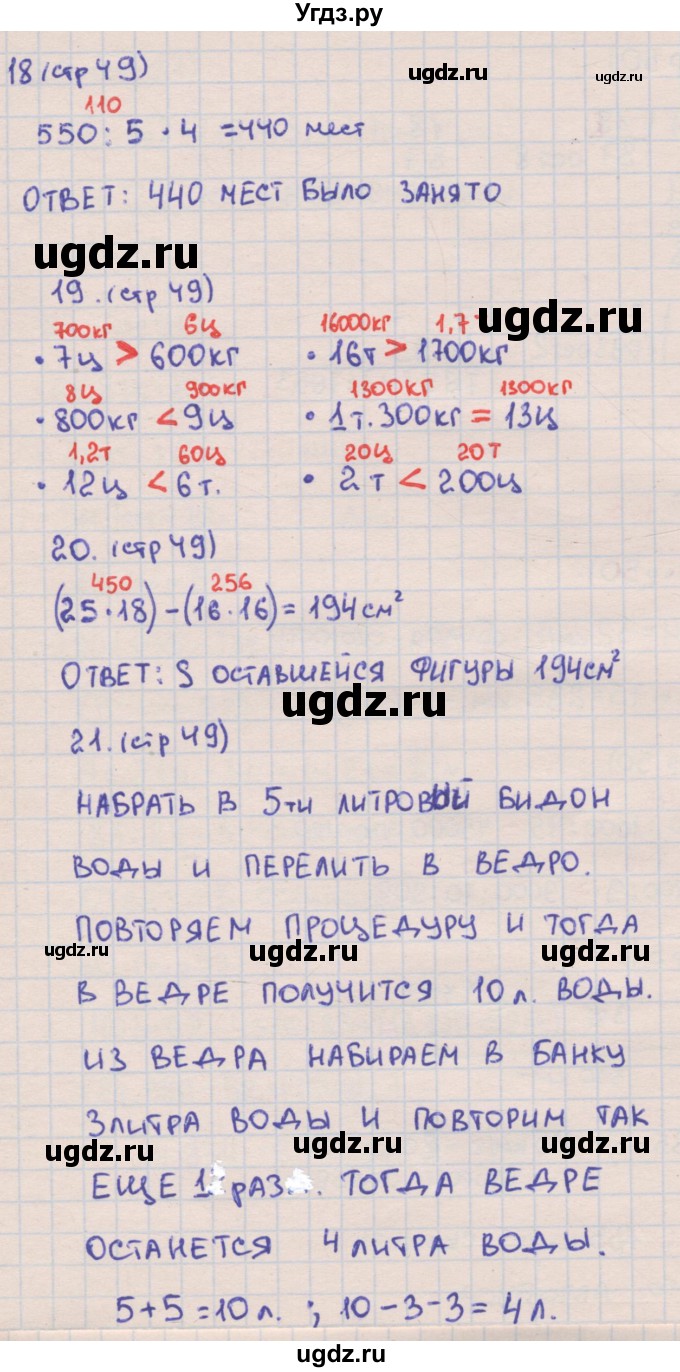 Угдз.ру
18 (стр 49)
ugdz.ru
ugdz.ru
110
550 : 5 · 4 = 440 мест
ОТВЕТ: 440 МЕСТ БЫЛО ЗАНЯТО
ugdz.ru
19. (стр 49)
ugdz.ru
700кг 6ц 16000кг 1,7т
· 7ц > 600кг · 16т > 1700кг
8ц 900кг 1300кг 1300кг
· 800кг < 9ц · 1т. 300кг = 13ц
1,2т 60ц 20ц 20т
· 12ц < 6т. · 2т < 200ц
20. (стр 49)
450 256
(25·18) - (16·16) = 194см²
ОТВЕТ: S ОСТАВШЕЙСЯ ФИГУРЫ 194см²
ugdz.ru
21. (стр 49)
НАБРАТЬ В 5ти ЛИТРОВЫЙ БИДОН
ВОДЫ И ПЕРЕЛИТЬ В ВЕДРО.
ПОВТОРЯЕМ ПРОЦЕДУРУ И ТОГДА
ugdz.ru ugdz.ru ugdz.ru
В ВЕДРЕ ПОЛУЧИТСЯ 10л. ВОДЫ.
ИЗ ВЕДРА НАБИРАЕМ В БАНКУ
3ЛИТРА ВОДЫ И ПОВТОРИМ ТАК
ugdz.ru ugdz.ru ugdz.ru
ЕЩЕ 1 РАЗ. ТОГДА ВЕДРЕ
ОСТАНЕТСЯ 4 ЛИТРА ВОДЫ.
5+5=10л. ; 10-3-3=4л.
ugdz.ru